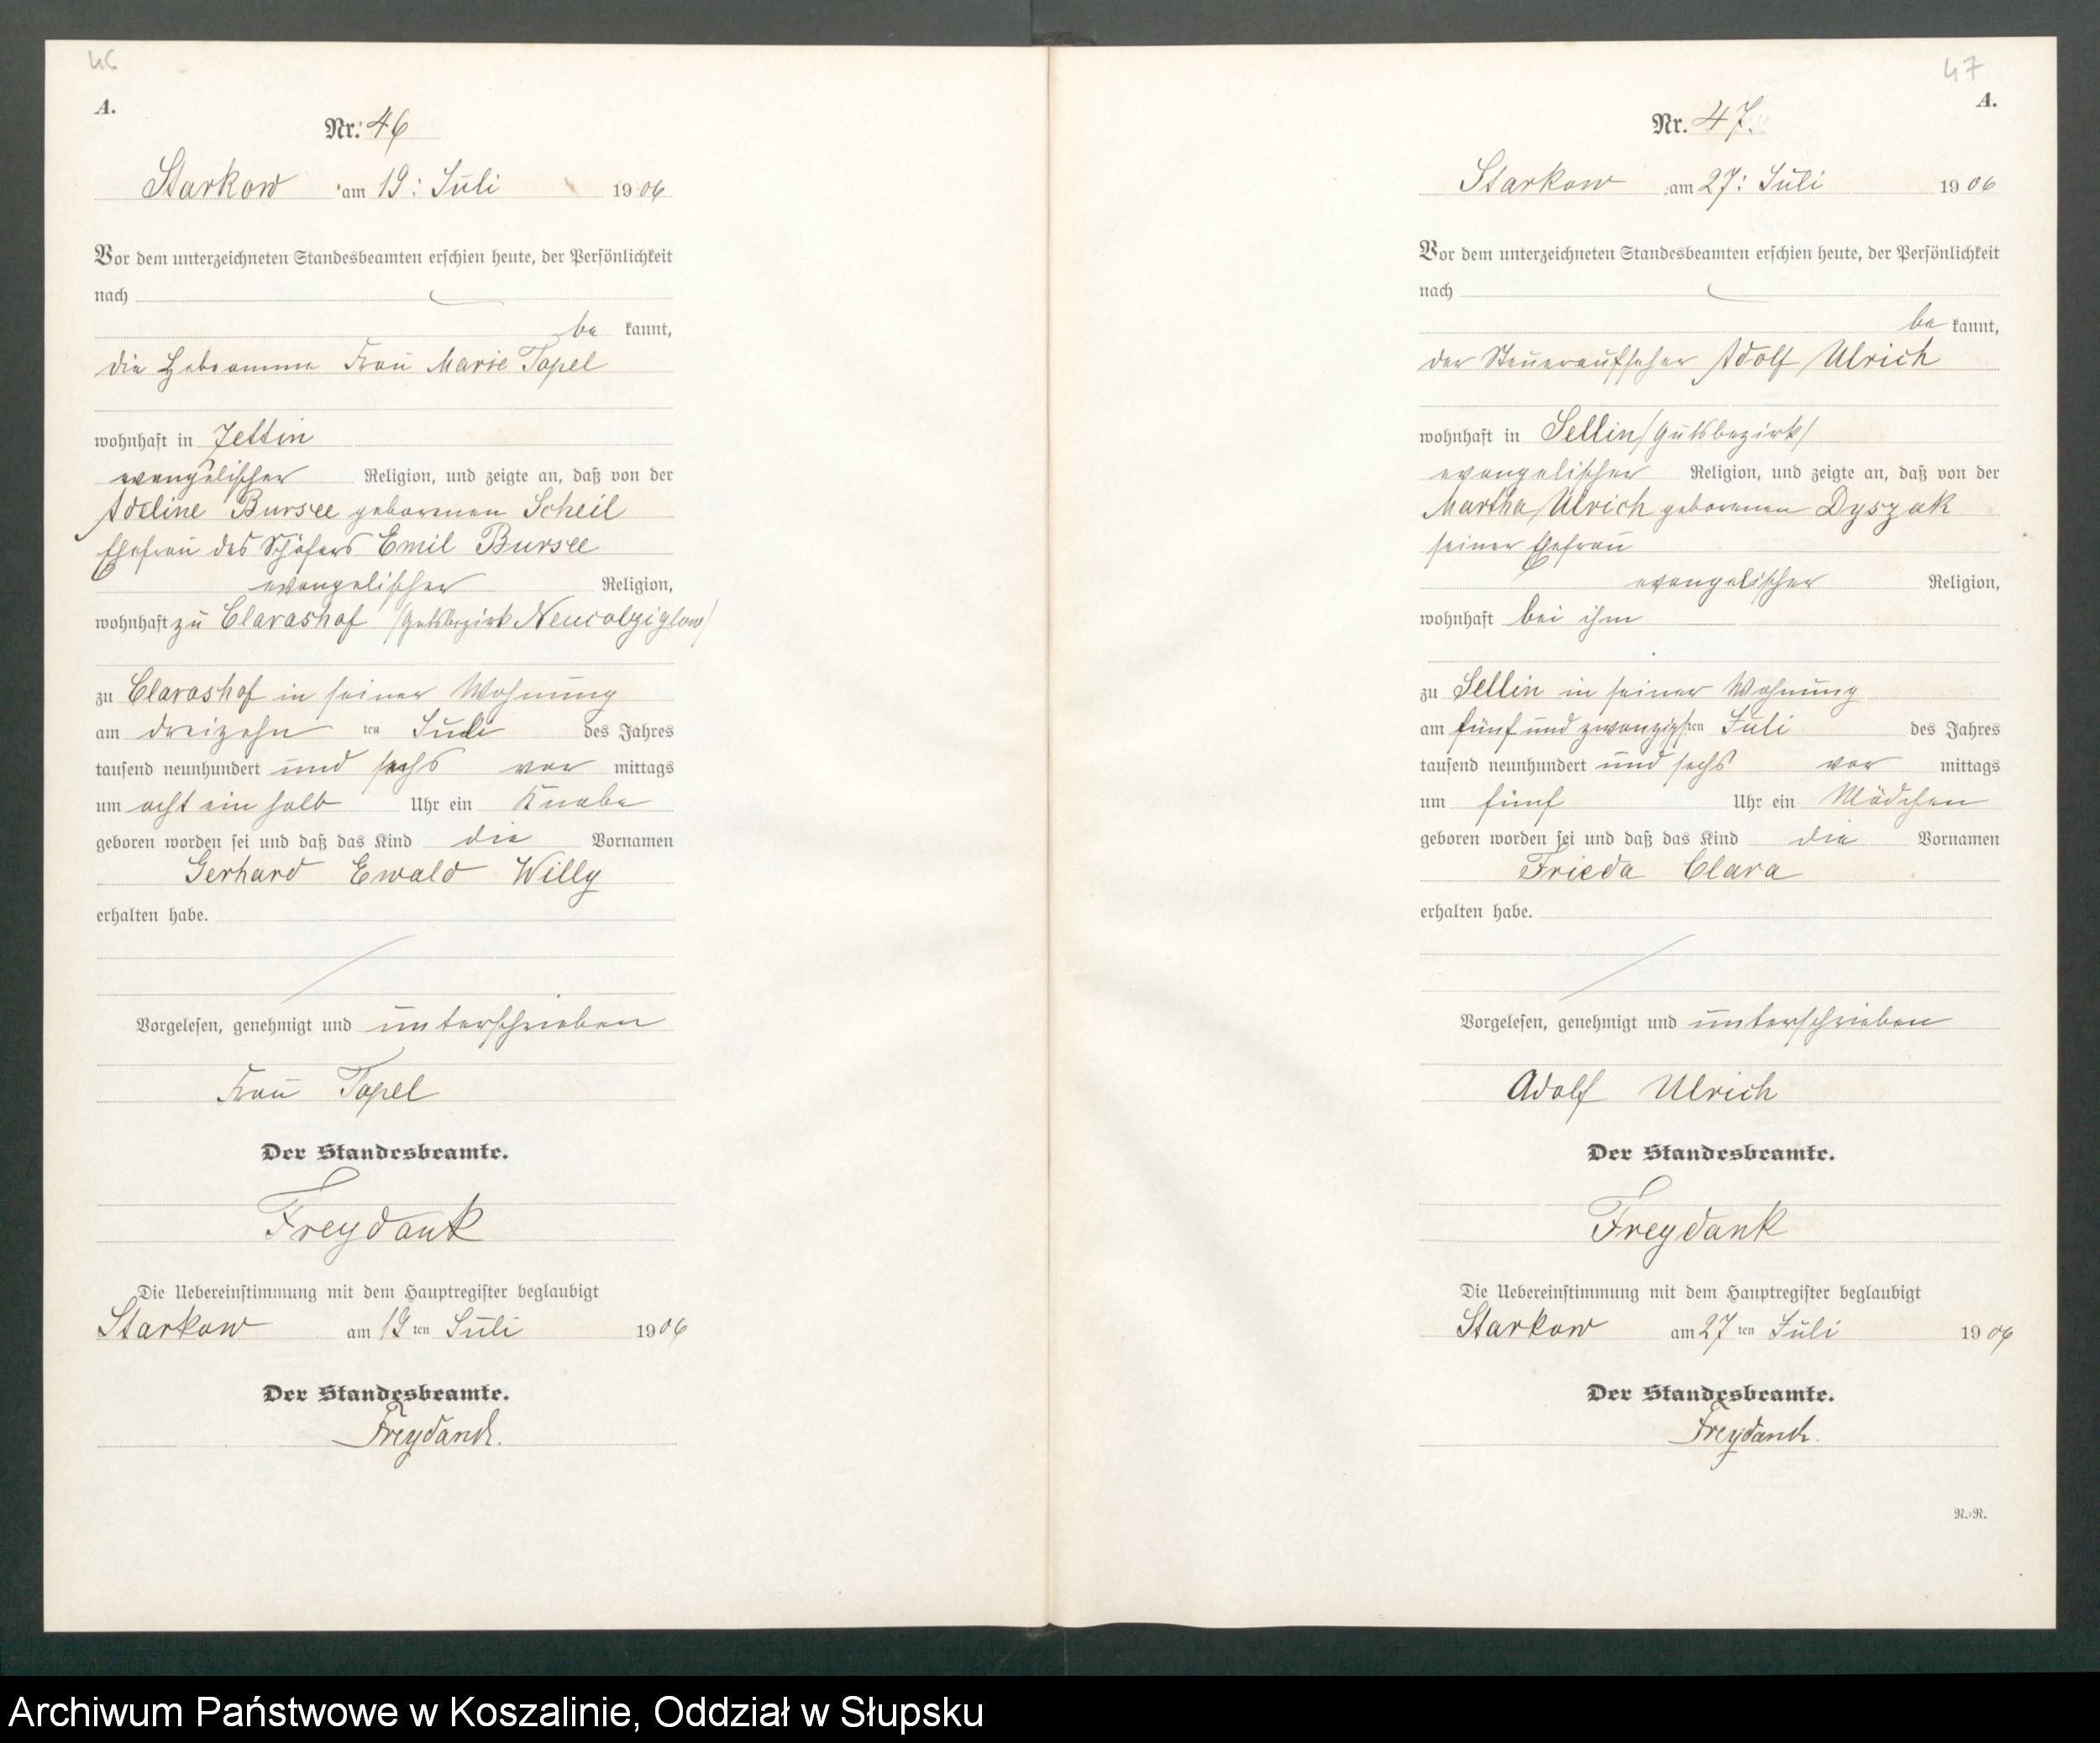 46
A.
Nr. 46
Starkow am 19: Juli 1906
Vor dem unterzeichneten Standesbeamten erschien heute, der Persönlichkeit
nach
be kannt,
die Hebeamme Frau Marie Papel
wohnhaft in Jettin
evangelischer Religion, und zeigte an, daß von der
Adeline Bursee geborenen Scheil
Ehefrau des Schäfers Emil Bursee
evangelischer Religion,
wohnhaft zu Clarashof (Gutsbezirk
zu Clarashof in seiner Wohnung
am dreizehn ten Juli des Jahres
tausend neunhundert und sechs vor mittags
um acht ein halb Uhr ein Knabe
geboren worden sei und daß das Kind die Vornamen
Gerhard Ewald Willy
erhalten habe.
Vorgelesen, genehmigt und unterschrieben
Frau Papel
Der Standesbeamte.
Freydank
Die Uebereinstimmung mit dem Hauptregister beglaubigt
Starkow am 19 ten Juli 1906
Der Standesbeamte.
Freydank.
47
A.
Nr. 47.
Starkow am 27: Juli 1906
Vor dem unterzeichneten Standesbeamten erschien heute, der Persönlichkeit
nach
be kannt,
der Steueraufseher Adolf Ulrich
wohnhaft in Sellin /Gutsbezirk/
evangelischer Religion, und zeigte an, daß von der
Martha Ulrich geborenen Dyszak
seiner Ehefrau
evangelischer Religion,
wohnhaft bei ihm
zu Sellin in seiner Wohnung
am fünf und zwanzigsten Juli des Jahres
tausend neunhundert und sechs vor mittags
um fünf Uhr ein Mädchen
geboren worden sei und daß das Kind die Vornamen
Frieda Clara
erhalten habe.
Vorgelesen, genehmigt und unterschrieben
Adolf Ulrich
Der Standesbeamte.
Freydank
Die Uebereinstimmung mit dem Hauptregister beglaubigt
Starkow am 27 ten Juli 1906
Der Standesbeamte.
Freydank.
N.=N.
Archiwum Państwowe w Koszalinie, Oddział w Słupsku